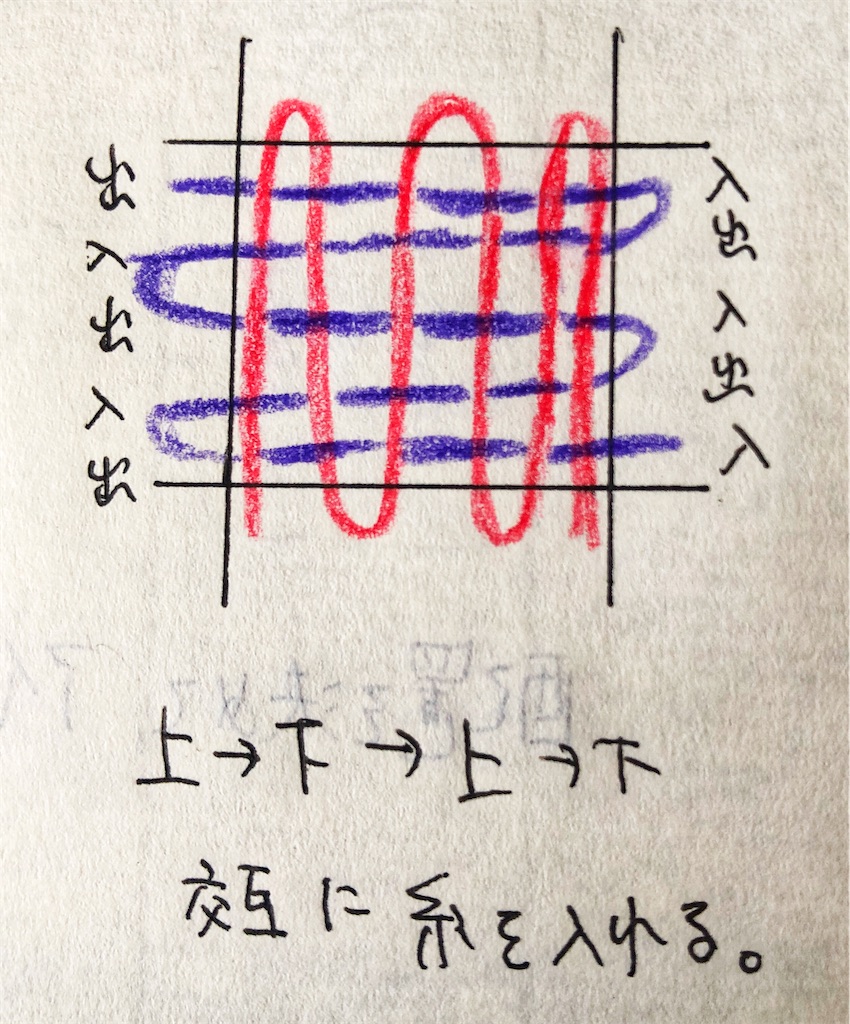 出 入
入 出
出 入
入 出
出 入
上→下→上→下
交互に糸を入れる。